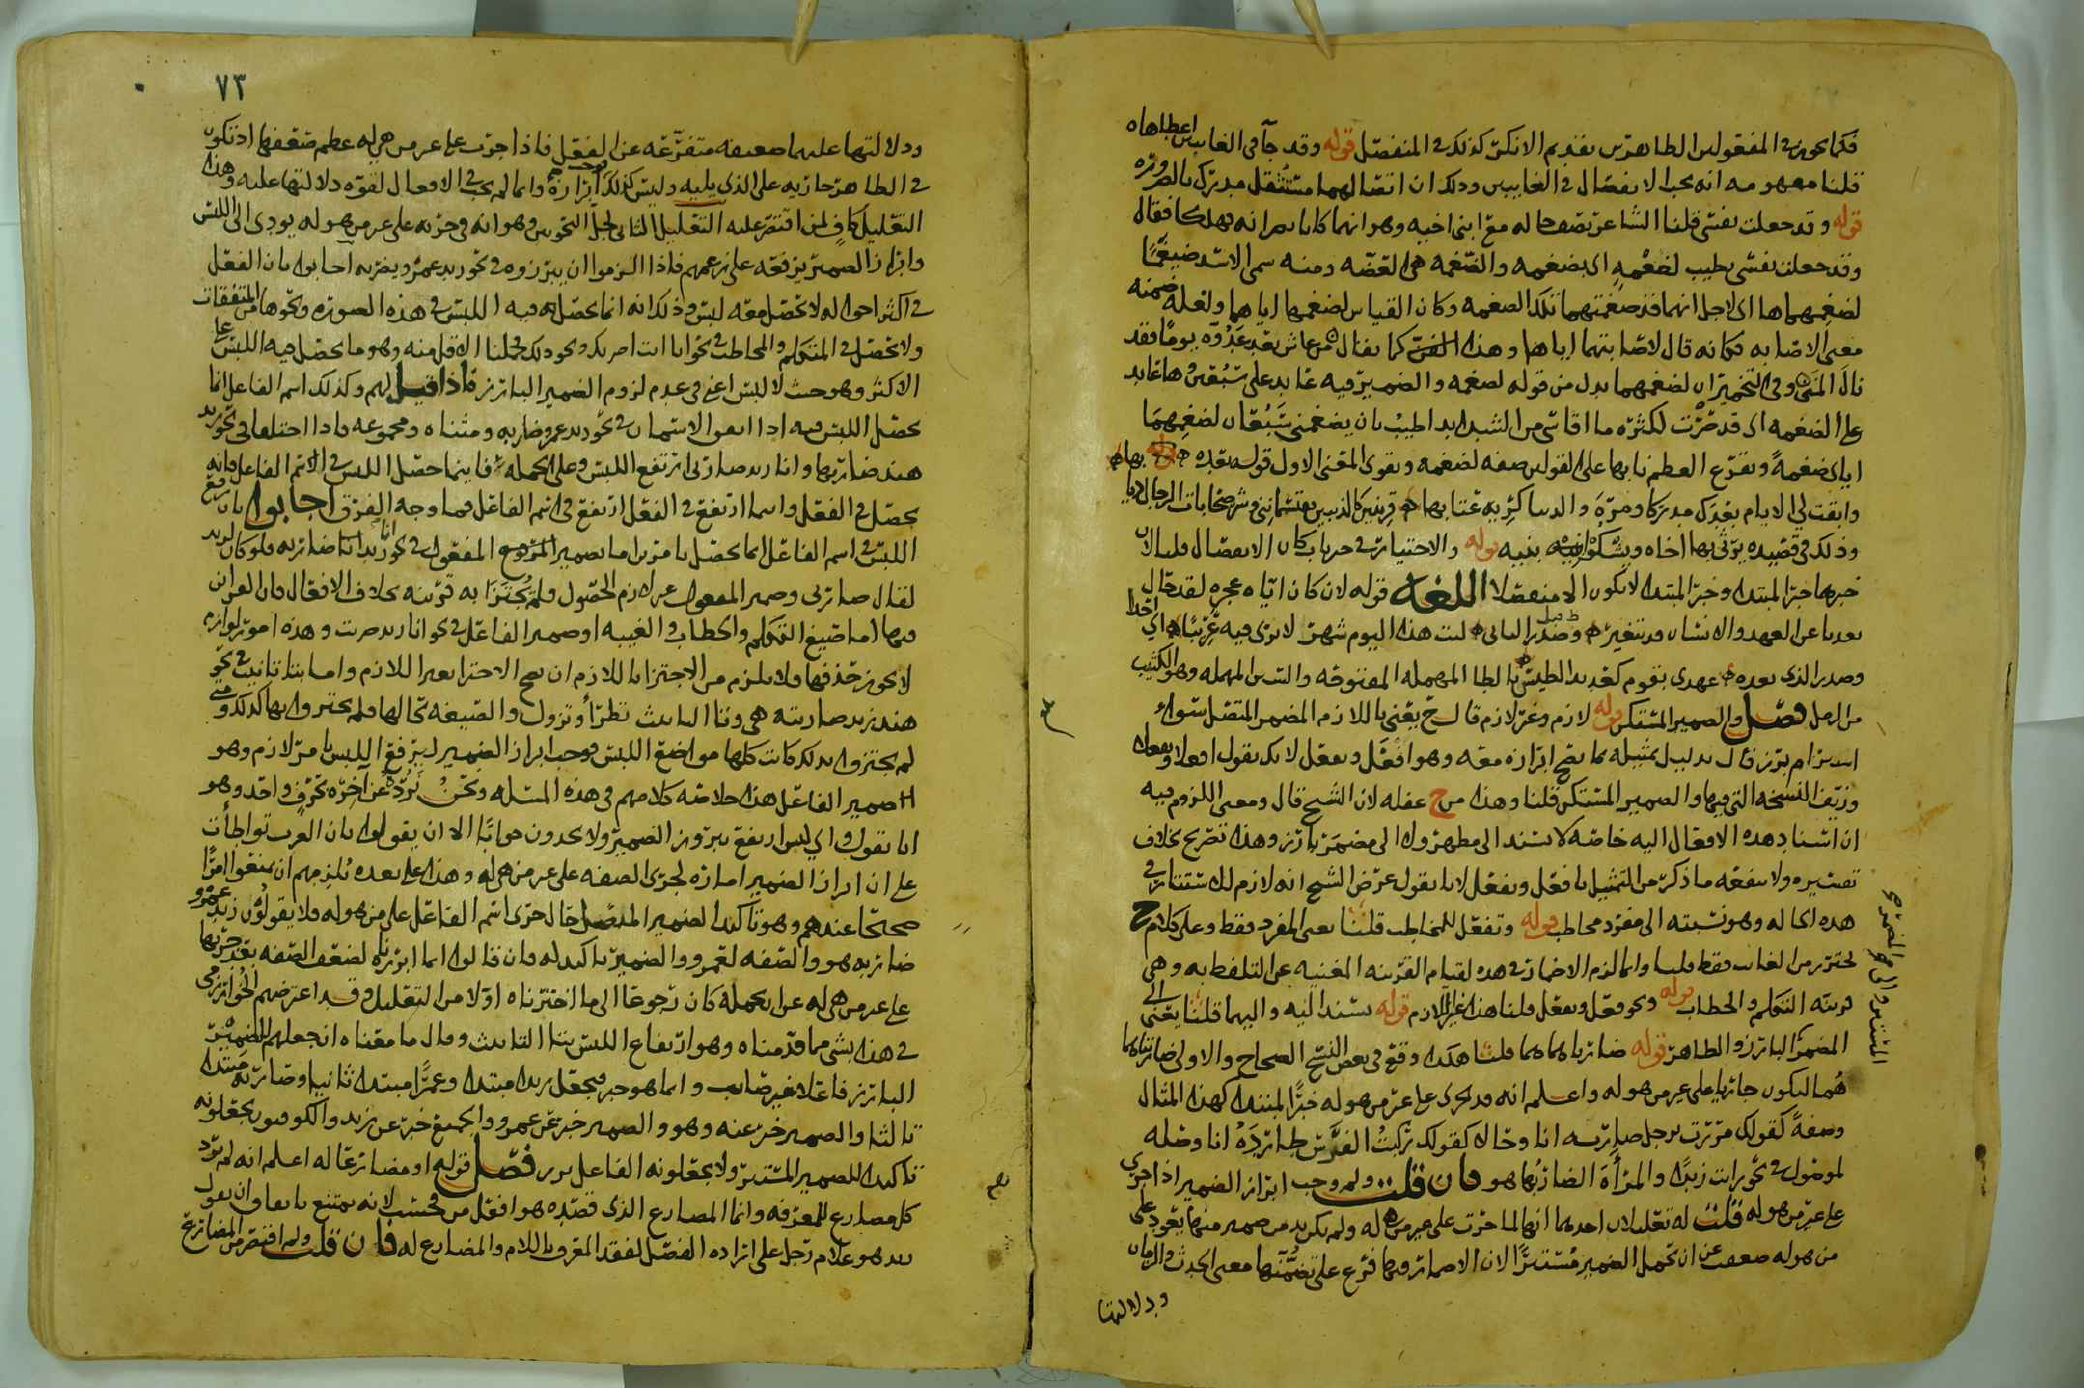 فكما يجوز في المفعولين الظاهرين تقديم الانكن كذلك في المنفصل قوله وقد جآ في الغايبين اعطاهاه
قلنا مفهومه انه يجب الانفصال في الغايبين وذلك ان اتصالهما مستثقل
قوله وقد جعلت نفسي قلنا الشاعر يصف حاله مع ابني اخيه وهو انهما كانا
وقد جعلت نفسي تطيب لضغمه اي بضغمه والضغمه هي العضه ومنه سمي الاسد ضيغما
لضغمهماها اي لاجل انهما قد ضغمتهما تلك الضغمه وكان القياس لضغمها اياهما ولعله ضمنه
معنى الاصابه فكانه قال لاصابتهما اياها وهذا كما يقال من عاش بعد عدوه يوما فقد
نال المنى وفي التخمير ان لضغمهما بدل من قوله لضغمه والضمير فيه عايد على سبعين وها عايد
على الضغمه اي قد صرت لكثرة ما اقاسي من الشدايد اطيب بان يضغمني سبعان لضغمهما
اياي ضغمة وتقرع العظم نابها على القولين صفه لضغمه ويقوي المعنى الاول قوله بعده
وابقت لي الايام بعدك مدركا ومرة والدنيا كريه عتابها قرينين كالذيبين يقتسمانني وشر صحابات الرجال ذيابها
وذلك في قصيده يرثي بها اخاه ويشكو بنيه قوله والاختيار في خبر باب كان الانفصال قلنا لان
خبرها خبر المبتدا وخبر المبتدا لا يكون الا منفصلا اللغه قوله لان كان اياه عجزه لقد حال
بعدنا عن العهد والانسان قد يتغير وصدر الثاني ليت هذا اليوم شهر لا نرى فيه غريبا اي احدا
وصدر الذي بعده عهدي بقوم كعديد الطيس بالطا المهمله المفتوحه والسين المهمله وهو الكثيب
من الرمل فصل والضمير المستكن قوله لازم وغير لازم قال ح يعني باللازم المضمر المتصل سواء
استتر ام برز قال بدليل تمثيله بما يصح ابرازه معه وهو افعل وتفعل لانك تقول افعلا وتفعلان
وزيف النسخه التي فيها والضمير المستكن قلنا وهذا من ح غفله لان الشيخ قال ومعنى اللزوم فيه
ان اسناد هذه الافعال اليه خاصه لا تسند الى مظهر ولا الى مضمر بارز وهذا تصريح بخلاف
تفسيره ولا ينفعه ما ذكر من التمثيل بافعل وتفعل لانا نقول غرض الشيخ انه لازم للاستتار في
هذه الحاله وهو نسبته الى مفرد مخاطب قوله وتفعل للمخاطب قلنا يعني المفرد فقط وعلى كلام ح
يحترز من الغايب فقط قلنا وانما لزم الاضمار في هذه لقيام القرينه المغنيه عن التلفظ به وهي
قرينه التكلم والخطاب قوله ونحو فعل ويفعل قلنا هذا غير اللازم قوله يسند اليه واليهما قلنا يعني الى
المضمر البارز والظاهر قوله ضارباهما هما قلنا هكذا وقع في بعض النسخ الصحاح والاولى ضاربتاهما
هما ليكون جاريا على غير من هو له واعلم انه قد يجري على غير من هو له خبرا لمبتدا كهذا المثال
وصفة كقولك مررت برجل ضاربه انا وحالا كقولك ركبت الفرس طاردة انا وصله
لموصول في نحو رايت زيدا والمرأة الضاربها هو فان قلت ولم وجب ابراز الضمير اذا جرى
على غير من هو له قلت له تعليلان احدهما انها لما جرت على غير من هي له ولم يكن بد من ضمير منها يعود على
من هو له ضعفت عن ان تحمل الضمير مستترا لان الاضمار فيها فرع على تضمنها معنى الحدث والزمان
ودلالتها
المستتر واللازم والمضمر
٧٣
ودلالتها عليهما ضعيفه متفرعه عن الفعل فاذا جرت على غير من هي له عظم ضعفها اذ تكون
في الظاهر جاريه على الذي يليه وليس كذلك فوجب ابرازه وانما لم يجب في الافعال لقوة دلالتها عليه وهذا
التعليل كاف لمن اقتصر عليه التعليل الثاني لجل النحويين وهو انه في جريه على غير من هو له يودي الى اللبس
وابراز الضمير يرفعه على زعمهم فاذا الزموا ان يبرزوه في نحو زيد عمرو يضربه اجابوا بان الفعل
في اكثر احواله لا يحصل معه لبس وذلك انه انما يحصل فيه اللبس في هذه الصوره ونحوها من المتفقات
ولا يحصل في المتكلم والمخاطب في نحو انا انت اضربك ونحو ذلك فحملنا الاقل منه وهو ما يحصل فيه اللبس على
الاكثر وهو حيث لا لبس اعني في عدم لزوم الضمير البارز فاذا قيل لهم وكذلك اسم الفاعل انما
يحصل اللبس فيه اذا اتفق الاسمان في نحو زيد عمرو ضاربه ومثناه ومجموعه فاذا اختلفا في نحو زيد
هند ضاربها وانا زيد ضاربي ارتفع اللبس وعلى الجمله فاينما حصل اللبس في اسم الفاعل فانه
يحصل في الفعل واينما ارتفع في الفعل ارتفع في اسم الفاعل فما وجه الفرق اجابوا بان رفع
اللبس في اسم الفاعل انما يحصل بامرين اما بضمير المفعول في نحو زيد انا ضاربه فلو كان لزيد
لقال ضاربي وضمير المفعول غير لازم الحصول فلم يجتزا به قرينه بخلاف الافعال فان القراين
فيها اما صيغ التكلم والخطاب والغيبه او ضمير الفاعل في نحو انا زيد ضربت وهذه امور لوازم
لا يجوز حذفها ولا يلزم من الاجتزا باللازم ان يصح الاجتزا بغير اللازم واما بتا تانيث في نحو
هند زيد ضاربته هي وتا التانيث تطرأ وتزول والصيغه بحالها فلم يجتزوا بها كذلك ومتى
لم يجتزوا بذلك كانت كلها مواضع اللبس فوجب ابراز الضمير ليرفع اللبس بامر لازم وهو
ضمير الفاعل هذا خلاصه كلامهم في هذه المسئله ونحن نرده عن آخره بحرف واحد وهو
انا نقول واي لبس ارتفع ببروز الضمير ولا يجدون جوابا الا ان يقولوا بان العرب تواطأت
على ان ابراز الضمير امارة لجري الصفه على غير من هي له وهذا على بعده يلزمهم ان يمنعوا امرا
صحيحا عندهم وهو تاكيد الضمير المتصل حال جري اسم الفاعل على من هو له فلا يقولون زيد عمرو
ضاربه هو والصفه لعمرو والضمير تاكيد له فان قالوا انما ابرزناه لضعف الصفه بعد جريها
على غير من هي له عن تحمله كان رجوعا الى ما اخترناه اولا من التعليل وقد اعترضهم الخوارزمي
في هذا بشي مما قدمناه وهو ارتفاع اللبس بتا التانيث وقال ما معناه ان جعلهم للضمير
البارز فاعلا غير صايب وانما هو خبر فيجعل زيد مبتدا وعمرا مبتدا ثانيا وضاربه مبتدا
ثالثا والضمير خبر عنه وهو والضمير خبر عن عمرو والجميع خبر عن زيد والكوفيون يجعلونه
تاكيدا للضمير المستتر ولا يجعلونه الفاعل فصل قوله او مضارعا له اعلم انه لم يرد
كل مضارع للمعرفه وانما المضارع الذي قصده هو افعل من فحسب لانه يمتنع باتفاق ان تقول
زيد هو غلام رجل على ارادة الفصل لفقد المعرف باللام والمضارع له فان قلت ولم اقتصر من المضارع